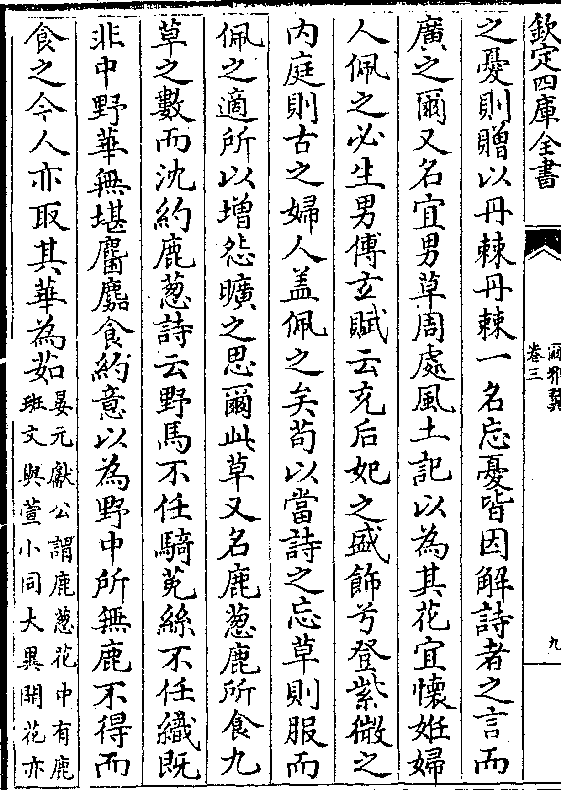 欽定四庫全書
爾雅翼
卷三
九
之憂則贈以丹棘丹棘一名忘憂皆因解詩者之言而
廣之爾又名宜男草周處風土記以為其花宜懷妊婦
人佩之必生男傅玄賦云充后妃之盛飾兮登紫微之
内庭則古之婦人盖佩之矣苟以當詩之忘草則服而
佩之適所以增愁曠之思爾此草又名鹿葱鹿所食九
草之數而沈約鹿葱詩云野馬不任騎兔絲不任織既
非中野華無堪麕麚食約意以為野中所無鹿不得而
食之今人亦取其華為茹晏元獻公謂鹿葱花中有鹿
班文與萱小同大異開花亦